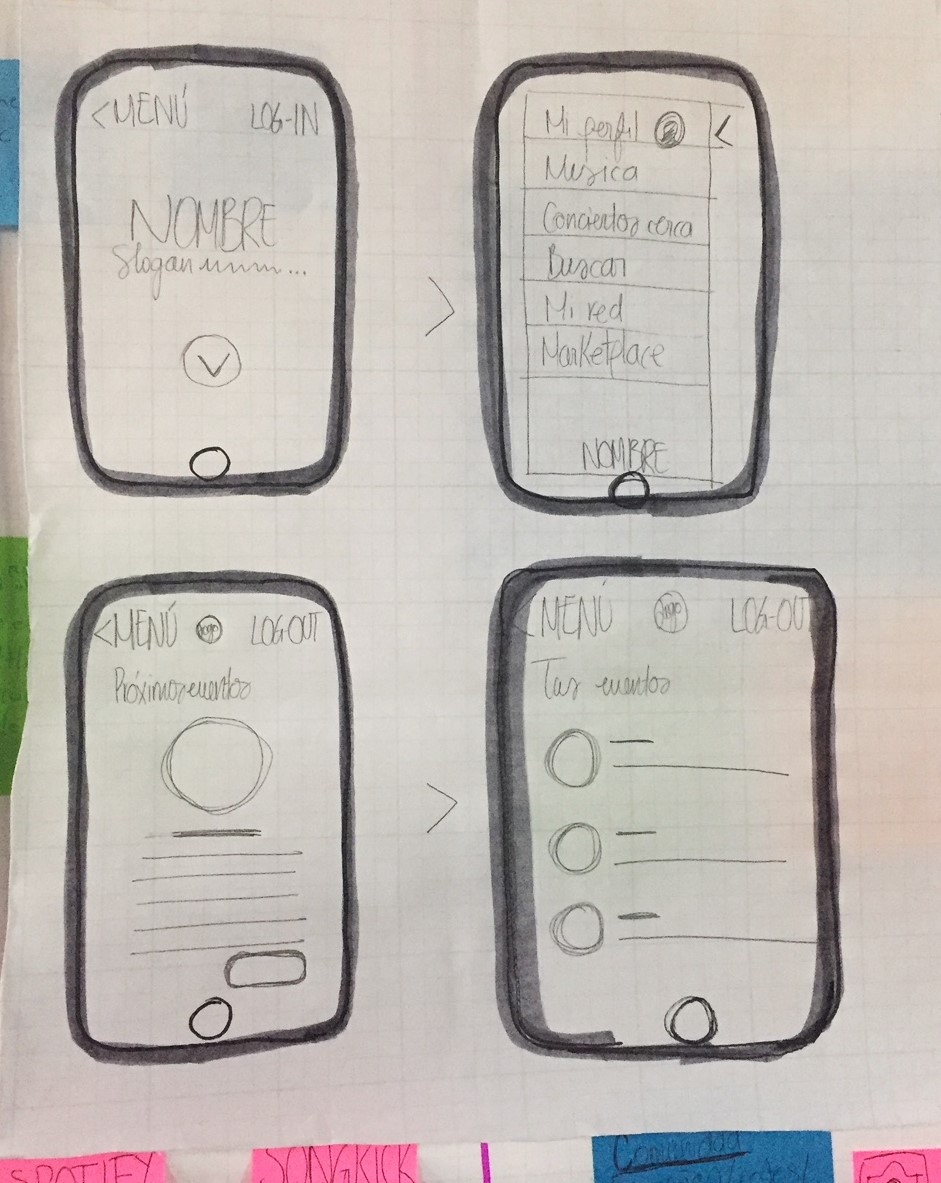 <MENÚ LOG-IN
NOMBRE
Slogan
Mi perfil
Musica
Conciertos cerca
Buscar
Mi red
Marketplace
NOMBRE
<MENÚ logo LOGOUT
Próximos eventos
<MENÚ logo LOG-OUT
Tus eventos
SPOTIFY
SONGKICK
Comunidad